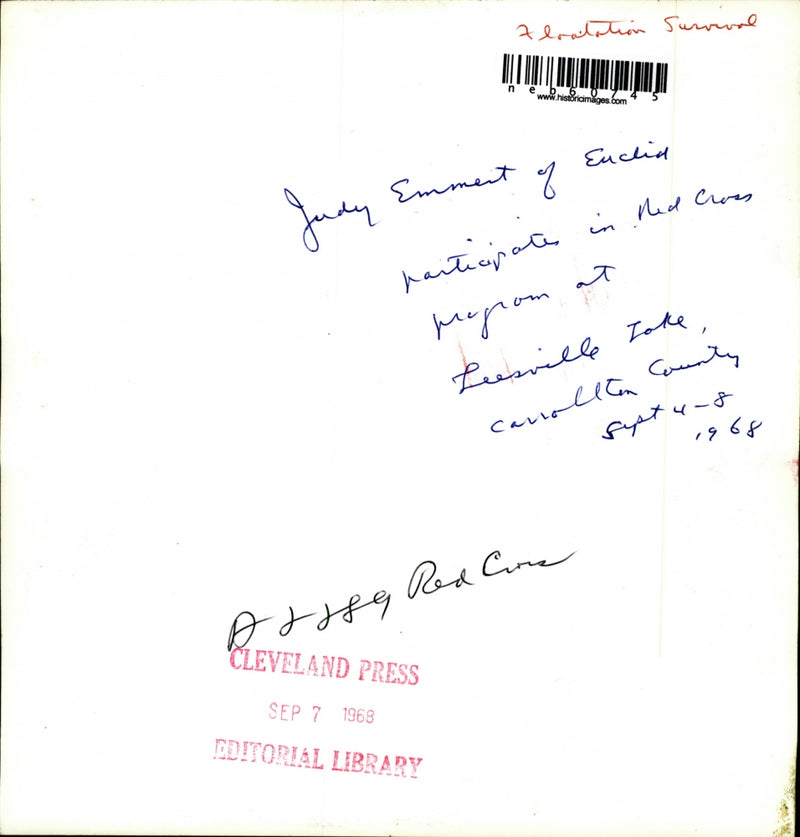 Floatation Survival
neb60745
www.historicimages.com
Judy Emmert of Euclid
participates in Red Cross
program at
Leesville Lake,
Carrollton County
Sept 4-8
1968
Red Cross
CLEVELAND PRESS
SEP 7 1968
EDITORIAL LIBRARY